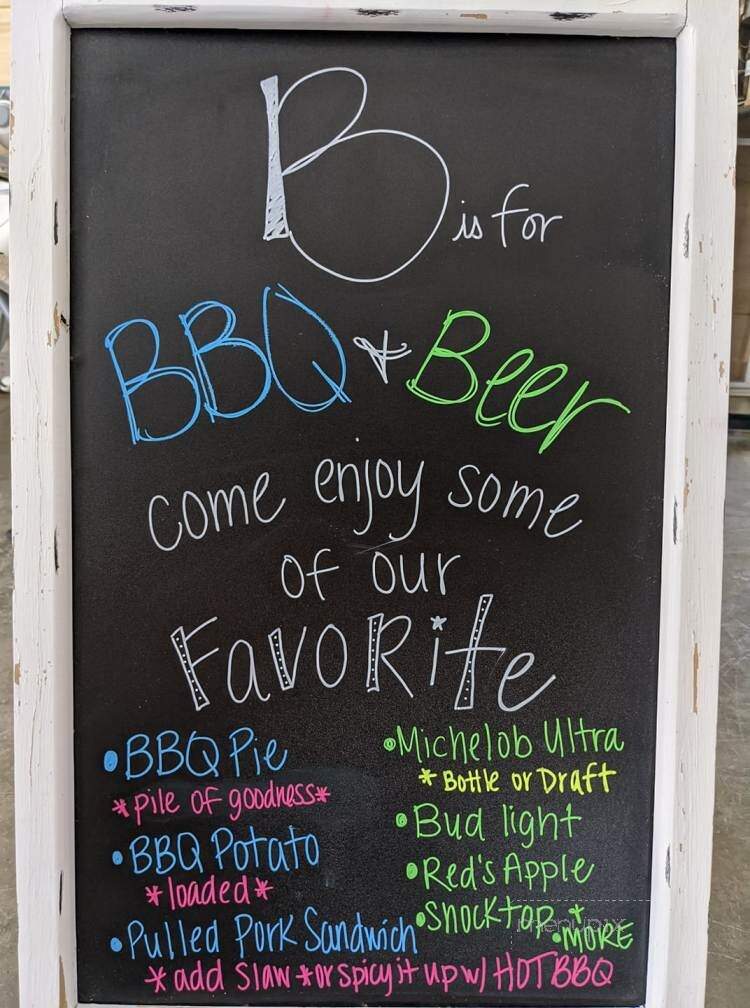 B is for
BBQ + Beer
come enjoy some
of our
FavoRite
• BBQ Pie
*pile of goodness*
• BBQ Potato
*loaded*
• Pulled Pork Sandwich
* add slaw * or spicy it up w/ HOT BBQ
• Michelob Ultra
* Bottle or Draft
• Bud light
• Red's Apple
• Shocktop
• * MORE
menupix